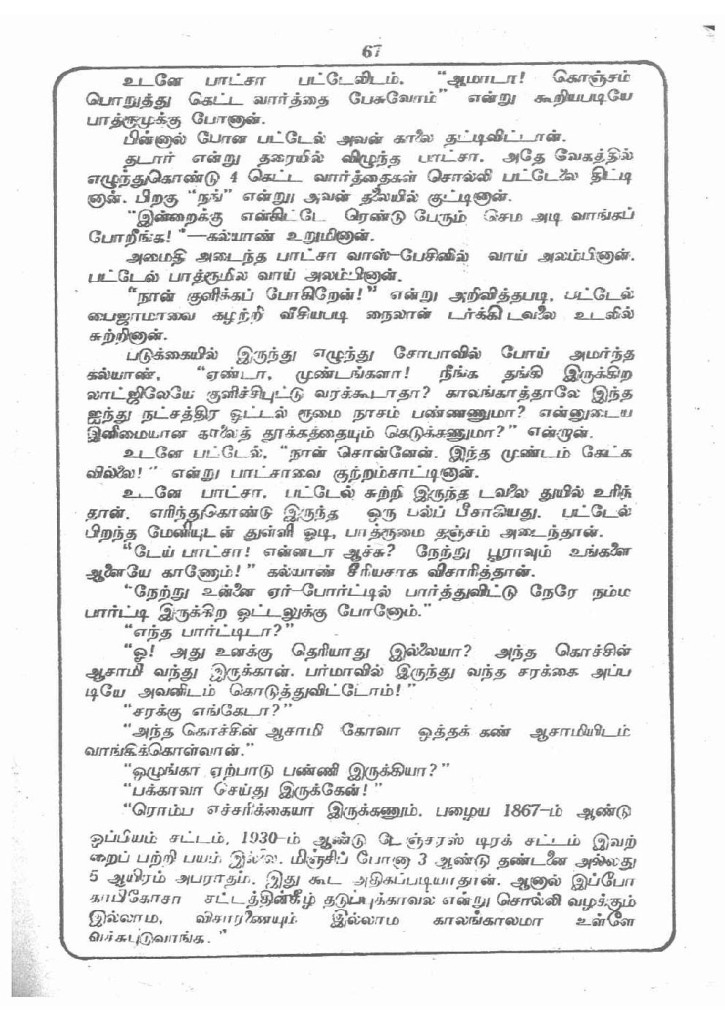 67
உடனே பாட்சா பட்டேலிடம், "ஆமாடா! கொஞ்சம்
பொறுத்து கெட்ட வார்த்தை பேசுவோம்" என்று கூறியபடியே
பாத்ரூமுக்கு போனான்.
பின்னால் போன பட்டேல் அவன் காலை தட்டிவிட்டான்.
தடார் என்று தரையில் விழுந்த பாட்சா, அதே வேகத்தில்
எழுந்துகொண்டு 4 கெட்ட வார்த்தைகள் சொல்லி பட்டேலை திட்டி
னான். பிறகு "நங்" என்று அவன் தலையில் குட்டினான்.
"இன்றைக்கு என்கிட்டே ரெண்டு பேரும் செம அடி வாங்கப்
போறீங்க!"—கல்யாண் உறுமினான்.
அமைதி அடைந்த பாட்சா வாஸ்-பேசினில் வாய் அலம்பினான்.
பட்டேல் பாத்ரூமில வாய் அலம்பினான்.
"நான் குளிக்கப் போகிறேன்!" என்று அறிவித்தபடி, பட்டேல்
பைஜாமாவை கழற்றி வீசியபடி நைலான் டர்க்கி டவலை உடலில்
சுற்றினான்.
படுக்கையில் இருந்து எழுந்து சோபாவில் போய் அமர்ந்த
கல்யாண், "ஏண்டா, முண்டங்களா! நீங்க தங்கி இருக்கிற
லாட்ஜிலேயே குளிச்சிபுட்டு வரக்கூடாதா? காலங்காத்தாலே இந்த
ஐந்து நட்சத்திர ஒட்டல் ரூமை நாசம் பண்ணணுமா? என்னுடைய
இனிமையான காலைத் தூக்கத்தையும் கெடுக்கணுமா?" என்றான்.
உடனே பட்டேல், "நான் சொன்னேன். இந்த முண்டம் கேட்க
வில்லை!" என்று பாட்சாவை குற்றம்சாட்டினான்.
உடனே பாட்சா, பட்டேல் சுற்றி இருந்த டவலை துயில் உரிந்
தான். எரிந்துகொண்டு இருந்த ஒரு பல்ப் பீசாகியது. பட்டேல்
பிறந்த மேனியுடன் துள்ளி ஓடி, பாத்ரூமை தஞ்சம் அடைந்தான்.
"டேய் பாட்சா! என்னடா ஆச்சு? நேற்று பூராவும் உங்களை
ஆளையே காணோம்!" கல்யாண் சீரியசாக விசாரித்தான்.
"நேற்று உன்னை ஏர்-போர்ட்டில் பார்த்துவிட்டு நேரே நம்ம
பார்ட்டி இருக்கிற ஒட்டலுக்கு போனோம்."
"எந்த பார்ட்டிடா?"
"ஓ! அது உனக்கு தெரியாது இல்லையா? அந்த கொச்சின்
ஆசாமி வந்து இருக்கான். பர்மாவில் இருந்து வந்த சரக்கை அப்ப
டியே அவனிடம் கொடுத்துவிட்டோம்!"
"சரக்கு எங்கேடா?"
"அந்த கொச்சின் ஆசாமி கோவா ஒத்தக் கண் ஆசாமியிடம்
வாங்கிக்கொள்வான்."
"ஒழுங்கா ஏற்பாடு பண்ணி இருக்கியா?"
"பக்காவா செய்து இருக்கேன்!"
"ரொம்ப எச்சரிக்கையா இருக்கணும். பழைய 1867-ம் ஆண்டு
ஒப்பியம் சட்டம், 1930-ம் ஆண்டு டேஞ்சரஸ் டிரக் சட்டம் இவற்
றைப் பற்றி பயம் இல்லை. மிஞ்சிப் போனா 3 ஆண்டு தண்டனை அல்லது
5 ஆயிரம் அபராதம். இது கூட அதிகப்படியாதான். ஆனால் இப்போ
காபிகோசா சட்டத்தின்கீழ் தடுப்புக்காவல் என்று சொல்லி வழக்கும்
இல்லாம, விசாரணையும் இல்லாம காலங்காலமா உள்ளே
வச்சுபுடுவாங்க."